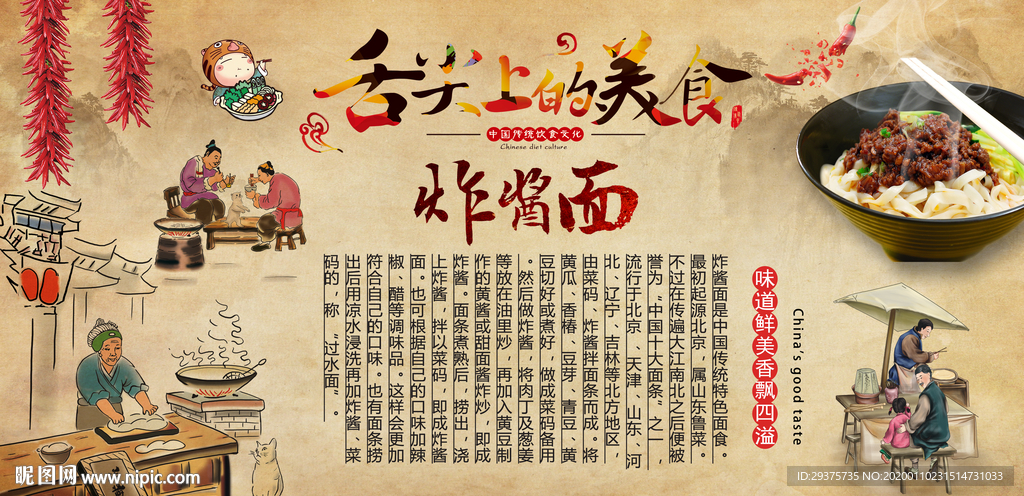 舌尖上的美食
中国传统饮食文化
Chinese diet culture
炸酱面
味道鲜美香飘四溢
China's good taste
炸酱面是中国传统特色面食。
最初起源北京，属山东鲁菜。
不过在传遍大江南北之后便被
誉为“中国十大面条”之一，
流行于北京、天津、山东、河
北、辽宁、吉林等北方地区，
由菜码、炸酱拌面条而成。将
黄瓜、香椿、豆芽、青豆、黄
豆切好或煮好，做成菜码备用
。然后做炸酱，将肉丁及葱姜
等放在油里炒，再加入黄豆制
作的黄酱或甜面酱炸炒，即成
炸酱。面条煮熟后，捞出，浇
上炸酱，拌以菜码，即成炸酱
面。也可根据自己的口味加辣
椒、醋等调味品。这样会更加
符合自己的口味。也有面条捞
出后用凉水浸洗再加炸酱、菜
码的，称“过水面”。
昵图网 www.nipic.com
ID:29375735 NO:20200110231514731033